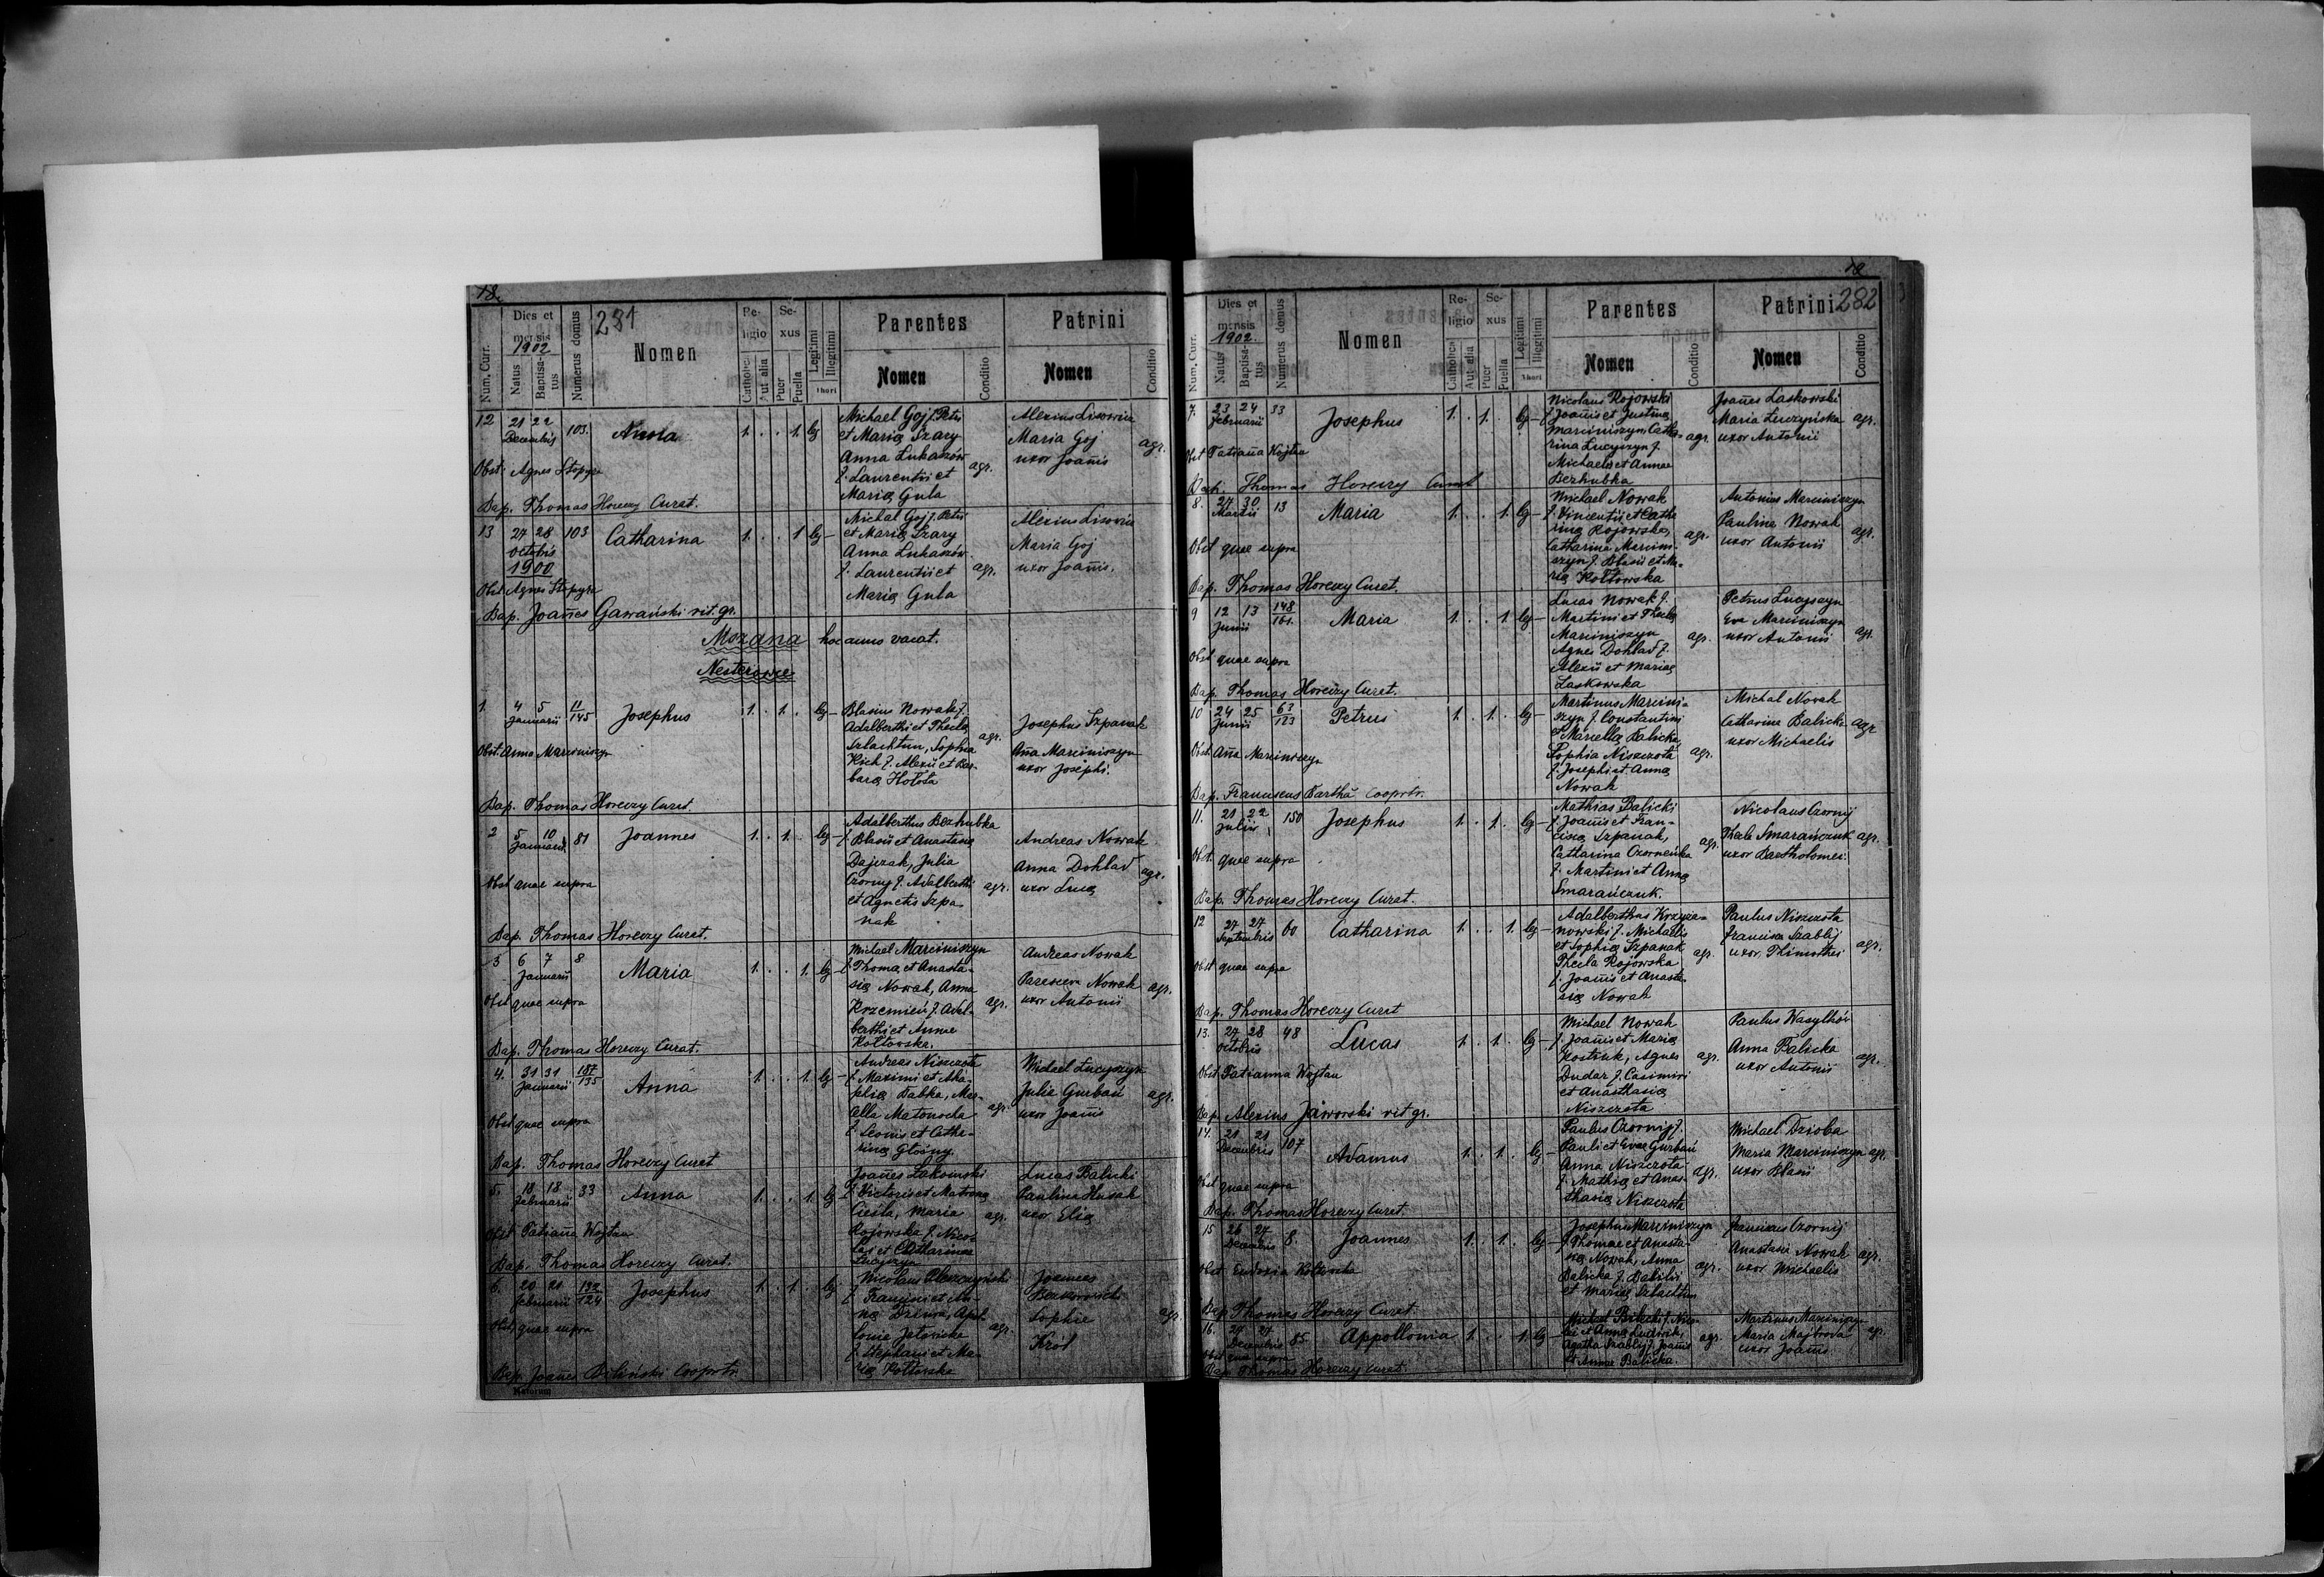 18
281
Num. Curr.
Dies et mensis
1902
Natus
Baptisatus
Numerus domus
Nomen
Religio
Catholica
Aut alia
Sexus
Puer
Puella
Legitimi
Illegitimi
Thori
Parentes
Nomen
Conditio
Patrini
Nomen
Conditio
12 21 22 Decembris 103. 1. . . 1. lg
Michael Goj f. Petri
et Mariæ Szary
Anna Łukaszów
f. Laurentii et agr.
Mariæ Gula
Alexius Lisowicz
Maria Goj agr.
uxor Joannis
Obst. Agnes Stopyra
Bap. Thomas Horeczy Curat.
13 27 28 Octobris 1900 103 Catharina 1. . . 1 lg-
Michal Goj f. Petri
et Mariæ Szary
Anna Łukaszów
f. Laurentii et agr.
Mariæ Gula
Alexius Lisowicz
Maria Goj
uxor Joannis.
Obst. Agnes Stopyra
Bap. Joannes Gawański rit. gr.
Mszana hoc anno vacat.
Nesterowce
1. 4 5 Januarii 11/145 Josephus 1. . 1. . lg-
Blasius Nowak f.
Adalberthi et Theclæ
Szlachtun, Sophia agr.
Kich f. Alexii et Bar-
baræ Hołota
Josephus Szpanak
Anna Marciniszyn
uxor Josephi.
Obst. Anna Marciniszyn
Bap. Thomas Horeczy Curat.
2 5 10 Januarii 81 Joannes 1. . 1. . lg-
Adalberthus Bezhubka
f. Blasii et Anastasiæ
Dajczak, Julia
Czorny f. Adalberthi agr.
et Agnetis Szpa-
nak
Andreas Nowak
Anna Dohlad agr.
uxor Lucæ
Obst quae supra
Bap. Thomas Horeczy Curat.
3 6 7 Januarii 8 Maria 1. . . 1. lg-
Michael Marciniszyn
f. Thomæ et Anasta-
siæ Nowak, Anna
Krzemień f. Adal- agr.
berthi et Annae
Kołtowska.
Andreas Nowak
Parascewa Nowak agr.
uxor Antonii
Obst quae supra
Bap. Thomas Horeczy Curat.
4. 31 31 Januarii 187/135 Anna 1. . . 1. lg-
Andreas Niszczota
f. Maximi et Aha-
phiæ Babka, Mar-
cella Matonocha agr.
f. Leonis et Catha-
rinæ Głośny
Michael Łucyszyn
Julia Gurbań agr.
uxor Joannis
Obst quae supra
Bap. Thomas Horeczy Curat
5. 18 18 Februarii 33 Anna 1. . . 1. lg-
Joannes Łakomski
f. Victoris et Matronæ
Cieśla, Maria agr.
Rojowska f. Nico-
lai et Catharinae
Łucyszyn
Lucas Balicki
Paulina Husak
uxor Eliæ
Obst Tatianna Wojtan
Bap. Thomas Horeczy Curat.
6. 20 20 Februarii 132/124 Josephus 1. . 1. . lg
f. Francisci et An-
næ Drewa, Apol-
lonia Jatowska agr.
f. Stephani et Ma-
riæ Kołtowska
Joannes
Sophie agr.
Król
Obst quae supra
Bap. Joannes Biliński Cooprtr.
Natorum
18
282
Num. Curr.
Dies et mensis
1902.
Natus
Baptisatus
Numerus domus
Nomen
Religio
Catholica
Aut alia
Sexus
Puer
Puella
Legitimi
Illegitimi
Thori
Parentes
Nomen
Conditio
Patrini
Nomen
Conditio
7. 23 24 Februarii 33 Josephus 1. . 1. . lg-
Nicolaus Rojowski
f. Joannis et Justinæ
Marciniszyn, Catha- agr.
rina Łucyszyn f.
Michaelis et Annae
Bezhubka
Joannes Laskowski
Maria Łuczyńska agr.
uxor Antonii
Obst Tatianna Wojtan
Bap. Thomas Horeczy Curat
8. 27 30 Martii 13 Maria 1. . . 1. lg-
Michael Nowak
f. Vincentii et Catha
rinæ Rojowska, agr.
Catharina Marcini-
szyn f. Blasii et Ma-
riæ Kołtowska
Antonius Marciniszyn
Paulina Nowak agr.
uxor Antonii
Obst quae supra
Bap. Thomas Horeczy Curat.
9 12 13 Junii 148/161. Maria 1. . . 1. lg-
Lucas Nowak f.
Martini et Theclæ
Marciniszyn agr.
Agnes Dohlad f.
Alexii et Mariæ
Laskowska
Petrus Łucyszyn
Eva Marciniszyn
uxor Antonii agr.
Obst quae supra
Bap. Thomas Horeczy Curat.
10 24 25 Junii 63/123 Petrus 1. . 1. . lg-
Martinus Marcini-
szyn f. Constantini
et Marcella Balicka,
Sophia Niszczota agr.
f. Josephi et Annæ
Nowak
Michal Nowak
Catharina Balicka agr
uxor Michaelis
Obst. Anna Marciniszyn
Bap. Franciscus Bartha Cooprtr.
11. 21 22 Julii 150 Josephus 1. . 1. . lg-
Mathias Balicki
f. Joannis et Fran-
ciscæ Szpanak, agr.
Catharina Czorneńka
f. Martini et Annæ
Smarańczuk.
Nicolaus Czornij
Thecla Smarańczuk agr.
uxor Bartholomei
Obst. quae supra
Bap. Thomas Horeczy Curat.
12 27 27 Septembris 60 Catharina 1. . . 1. lg-
Adalberthus Krzyża-
nowski f. Michaelis
et Sophiæ Szpanak agr.
Thecla Rojowska
f. Joannis et Anasta-
siæ Nowak
Paulus Niszczota
Francisca Szablij
uxor Thimothei agr.
Obst quae supra
Bap. Thomas Horeczy Curat
13. 27 28 Octobris 48 Lucas 1. . 1. . lg-
Michael Nowak
f. Joannis et Mariæ
Kostiuk, Agnes agr.
Dudar f. Casimiri
et Anasthasiæ
Niszczota
Paulus Wasylków
Anna Balicka
uxor Antonii agr.
Obst Tatianna Wojtan
Bap. Alexius Jaworski rit. gr.
14. 21 21 Decembris 107 Adamus 1. . 1. . lg-
Paulus Czornij f.
Pauli et Evae Gurbań
Anna Niszczota agr.
f. Mathiæ et Anas-
thasiæ Niszczota
Michael Dzioba
Maria Marciniszyn agr.
uxor Blasii
Obst quae supra
Bap. Thomas Horeczy Curat.
15 26 27 Decembris 8. Joannes 1. . 1. . lg-
Josephus Marciniszyn
f. Thomae et Anasta-
siæ Nowak, Anna agr.
Balicka f. Basilii
et Mariæ Szlachtun
Franciscus Czornij
Anastasia Nowak agr.
uxor Michaelis
Obst. Eudoxia Kołtowska
Bap. Thomas Horeczy Curat.
16. 27 27 Decembris 85. Appollonia 1. . . 1. lg-
Michael Balicki f. Nico-
lai et Annæ Ludwik, agr.
Agatha Szablij f. Joannis
et Annae Balicka.
Martinus Marciniszyn
Maria Majkrota agr.
uxor Joannis
Obst quae supra
Bap. Thomas Horeczy Curat.